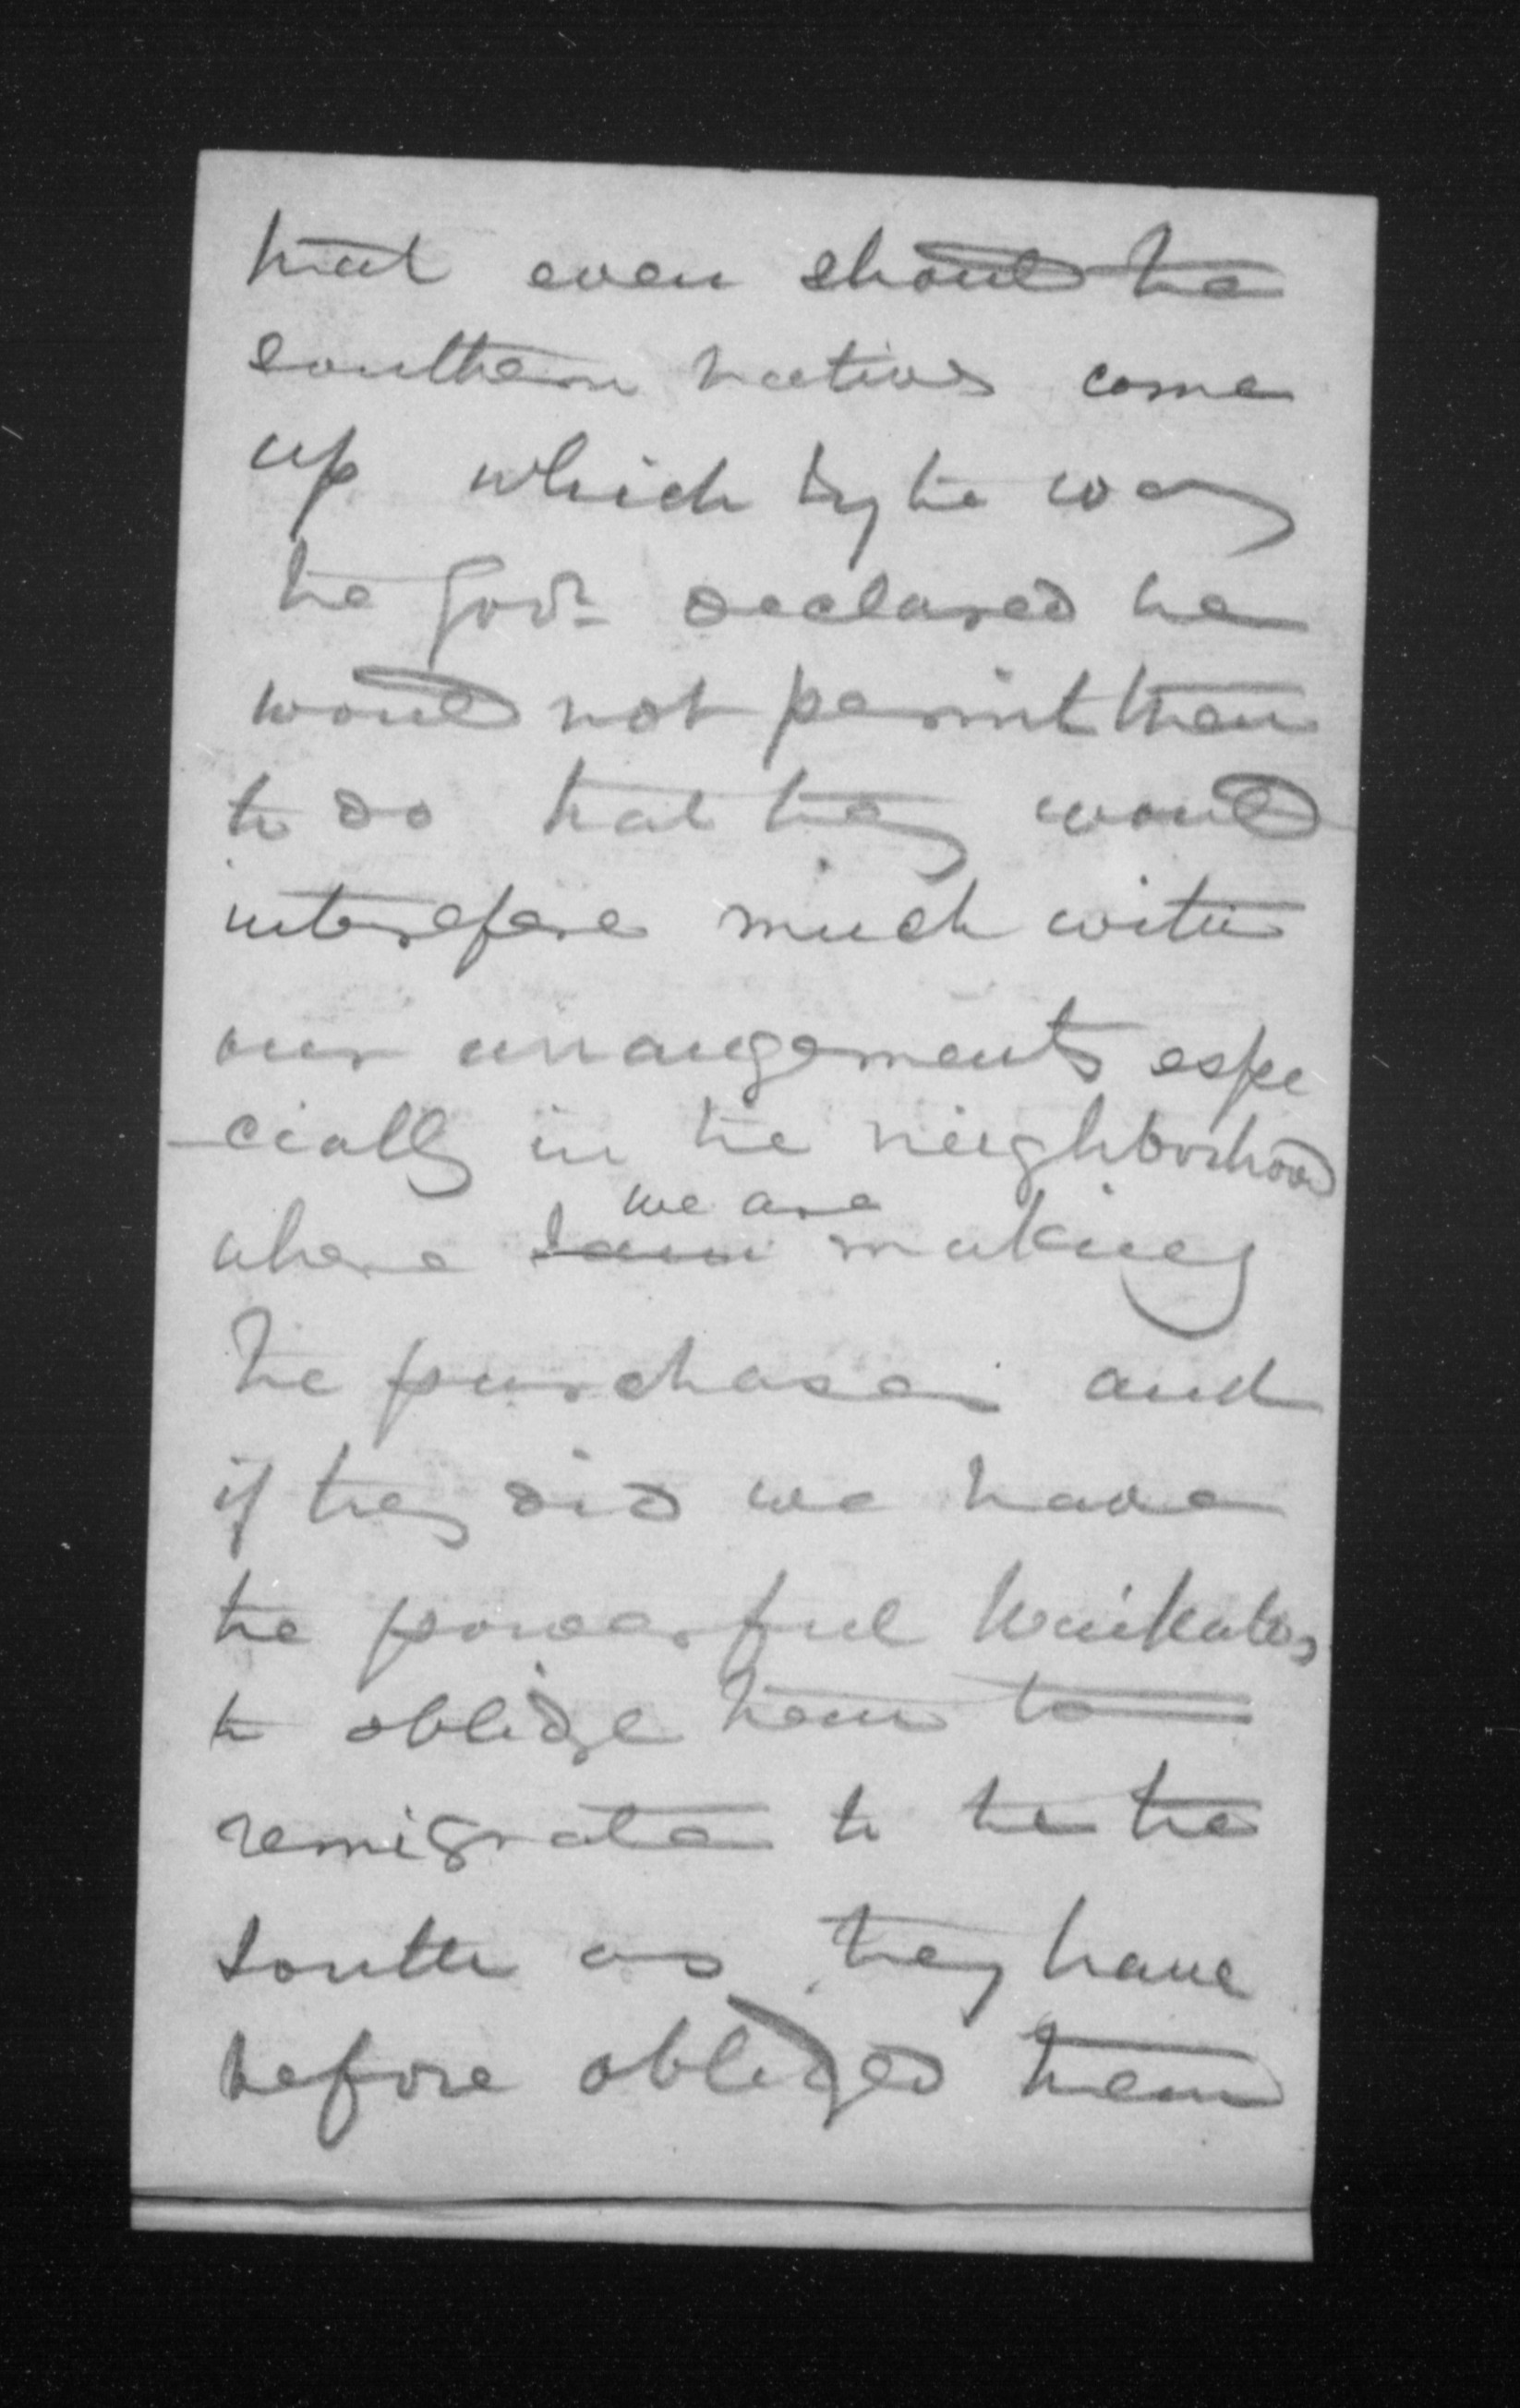 that even should the
southern natives come
up which by the way
the Govr declared he
would not permit them
to do that they would
interefere much with
our arrangements espe
-cially in the neighborhood
where I am we are making
the purchase and
if they did we have
the powerful Waikatos
to oblidge them to
remigrate to the the
south as they have
before oblidged them